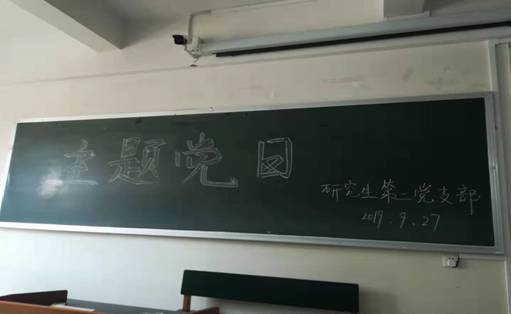 主题党日
研究生第二党支部
2019.9.27